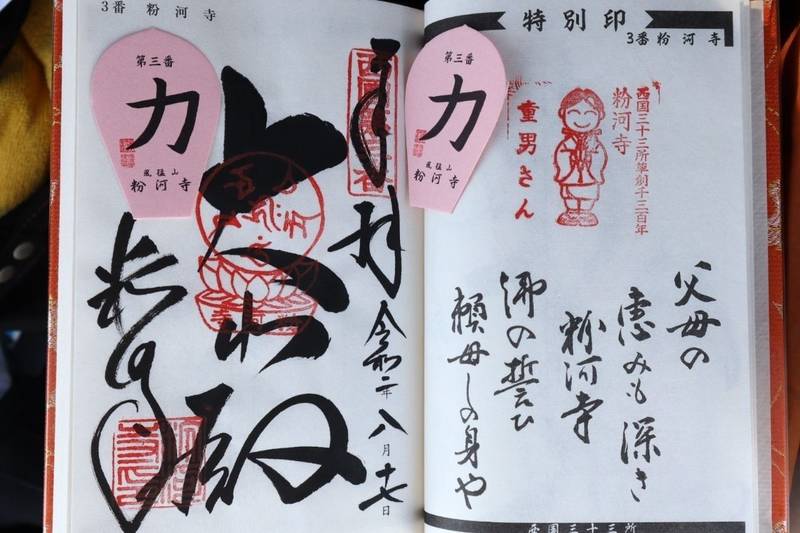 特別印
3番 粉河寺
西国三十三所草創千三百年
粉河寺
童男さん
父母の
恵みも深き
粉河寺
佛の誓ひ
頼母しの身や
西国三十三所
第三番
力
風猛山
粉河寺
3番 粉河寺
奉拝
令和二年八月十七日
大悲殿
粉河寺
第三番
力
風猛山
粉河寺